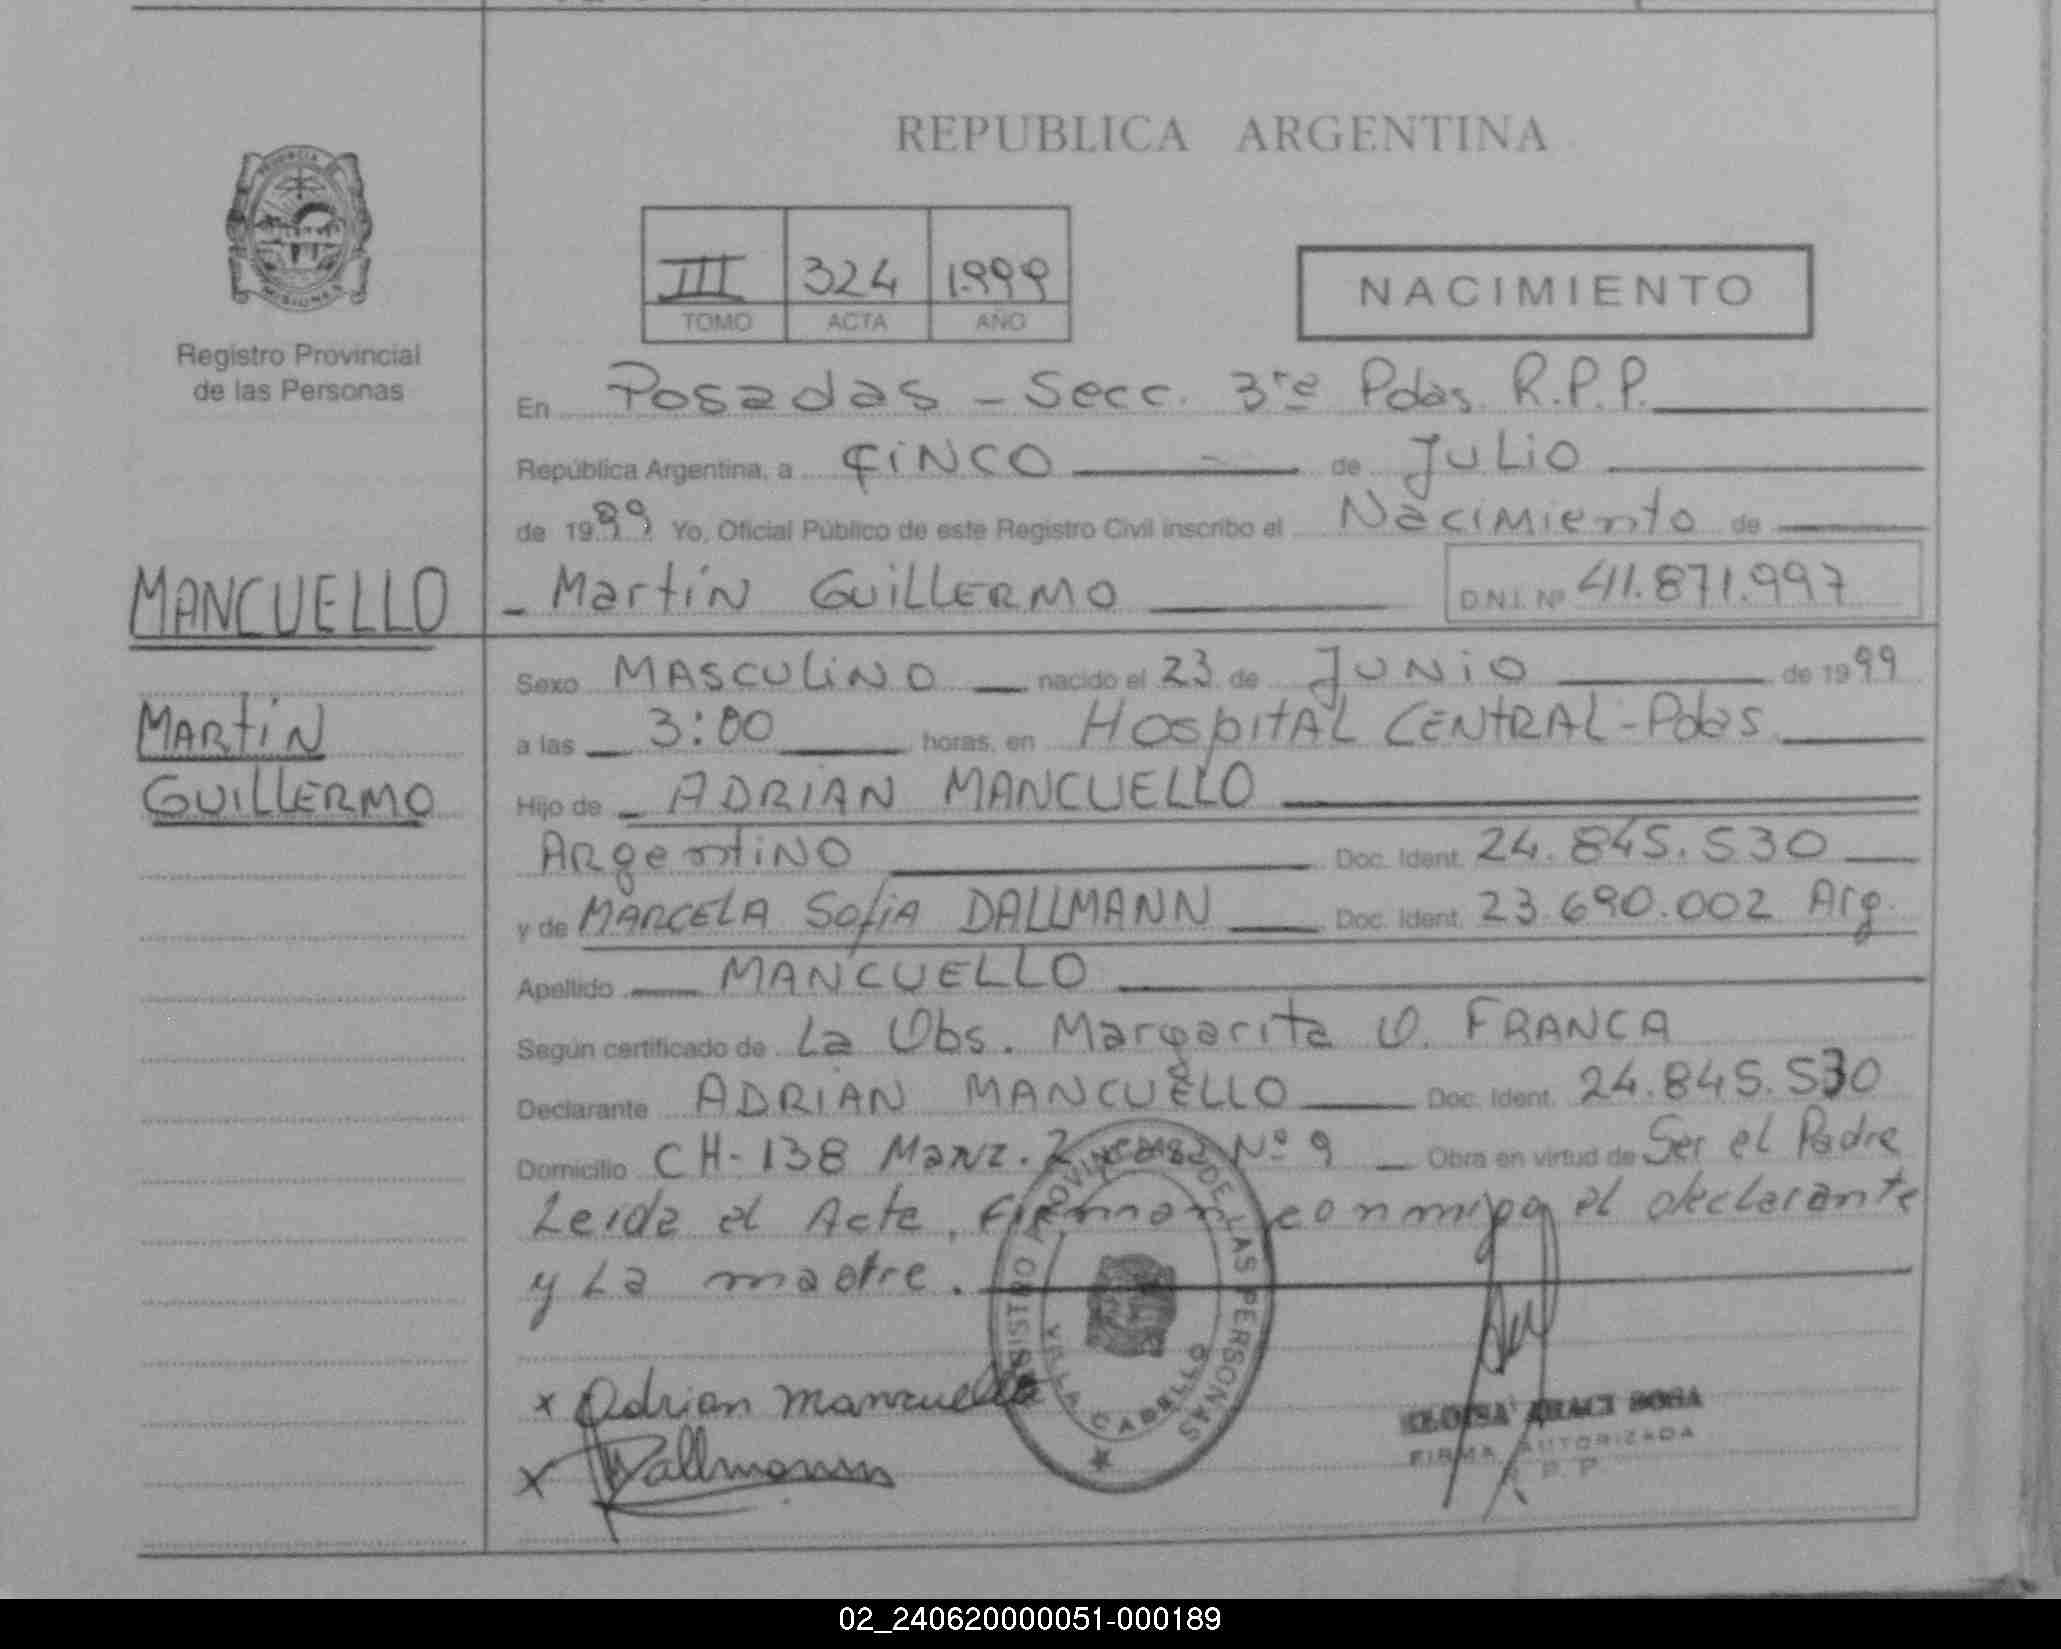 REPUBLICA ARGENTINA
PROVINCIA
MISIONES
Registro Provincial
de las Personas
III 324 1.999
TOMO ACTA AÑO
NACIMIENTO
En Posadas - Secc. 3ra Pdas. R.P.P.
República Argentina, a CINCO de JULIO
de 1999 Yo, Oficial Público de este Registro Civil inscribo el Nacimiento de
MANCUELLO
- Martín GUILLERMO D.N.I. Nº 41.871.997
Sexo MASCULINO nacido el 23 de JUNIO de 1999
MARTÍN
a las 3:00 horas, en HOSPITAL CENTRAL-Pdas
GUILLERMO
Hijo de ADRIAN MANCUELLO
Argentino Doc. Ident. 24.845.530
y de MARCELA SOFIA DALLMANN Doc. Ident. 23.690.002 Arg.
Apellido MANCUELLO
Según certificado de La Obs. Margarita O. FRANCA
Declarante ADRIAN MANCUELLO Doc. Ident. 24.845.530
Domicilio CH-138 Manz. 2 casa Nº 9 Obra en virtud de Ser el Padre
Leida el Acta, firman conmigo el declarante
y La madre.
REGISTRO PROVINCIAL DE LAS PERSONAS
VILLA CABELLO
x Adrian Mancuello
x Dallmann
ELOISA ARACI SOSA
FIRMA AUTORIZADA
R. P. P.
02_240620000051-000189